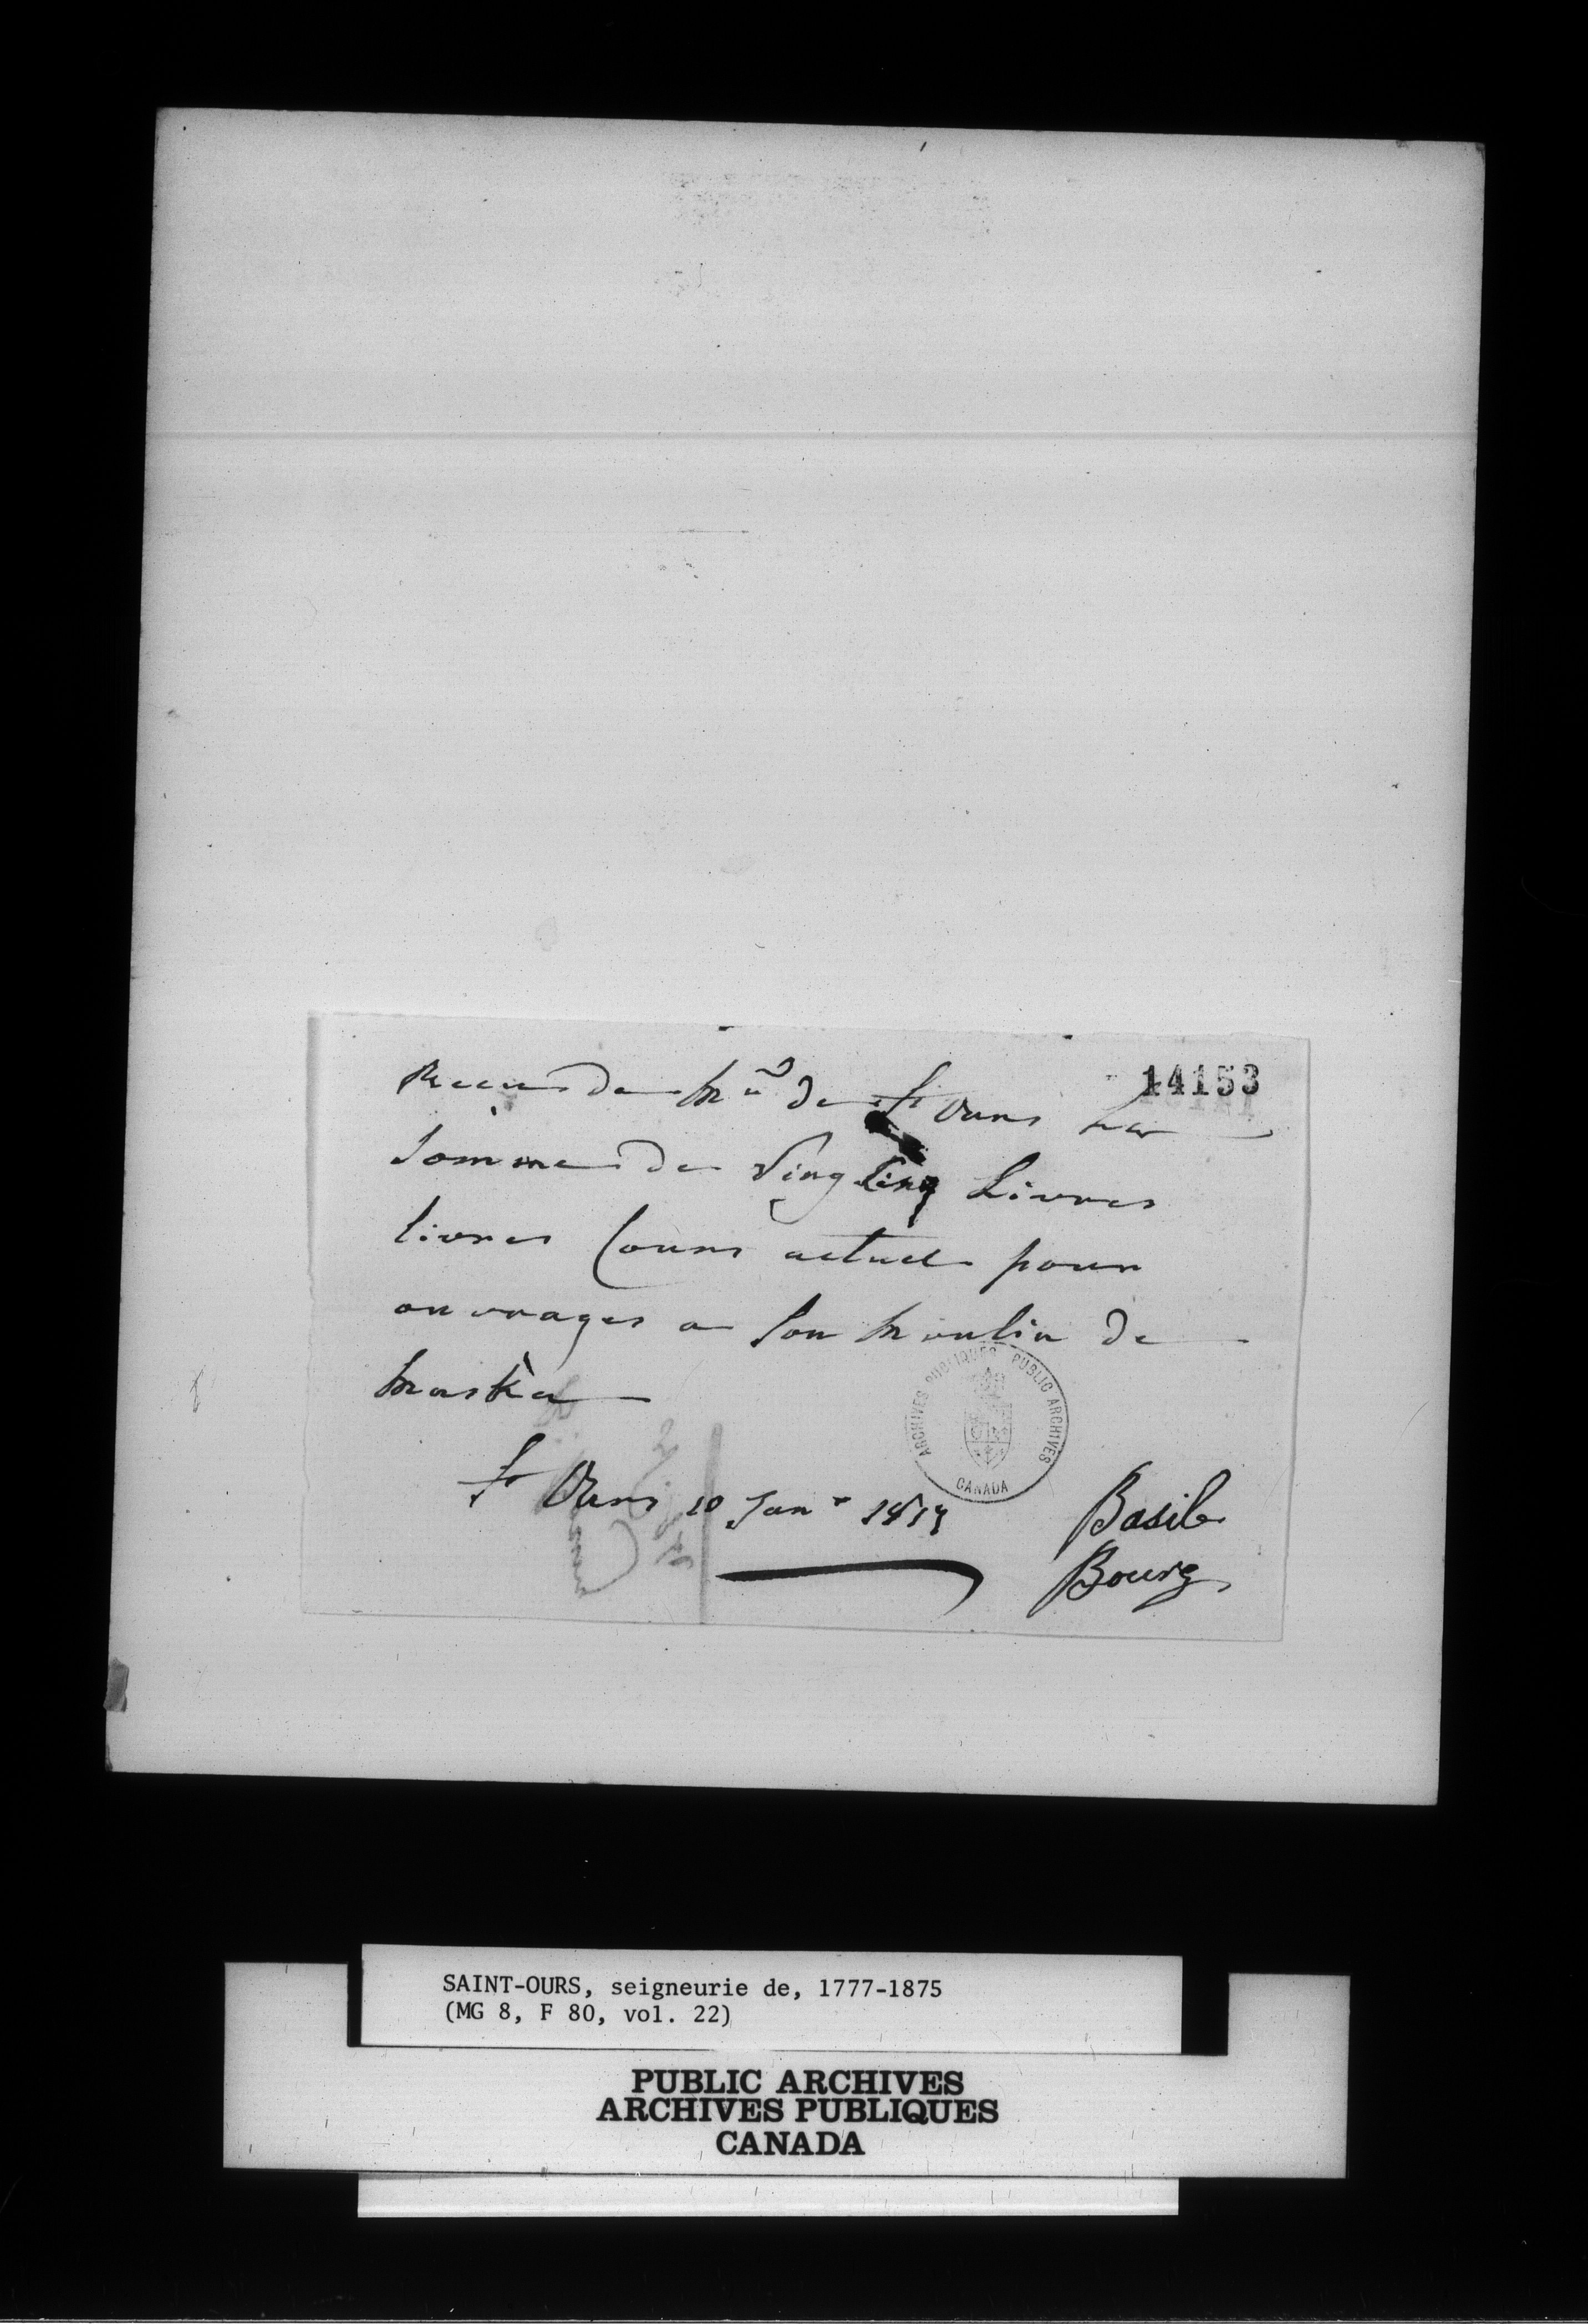 14153
Recus de Mr de St Ours La
Somme de Ving Cinq Livres
livres Cours actuel pour
ouvrages a Son Moulin de
Maska
St Ours 10 Janr 1817
Basile
Bourg
ARCHIVES PUBLIQUES PUBLIC ARCHIVES
CANADA
SAINT-OURS, seigneurie de, 1777-1875
(MG 8, F 80, vol. 22)
PUBLIC ARCHIVES
ARCHIVES PUBLIQUES
CANADA